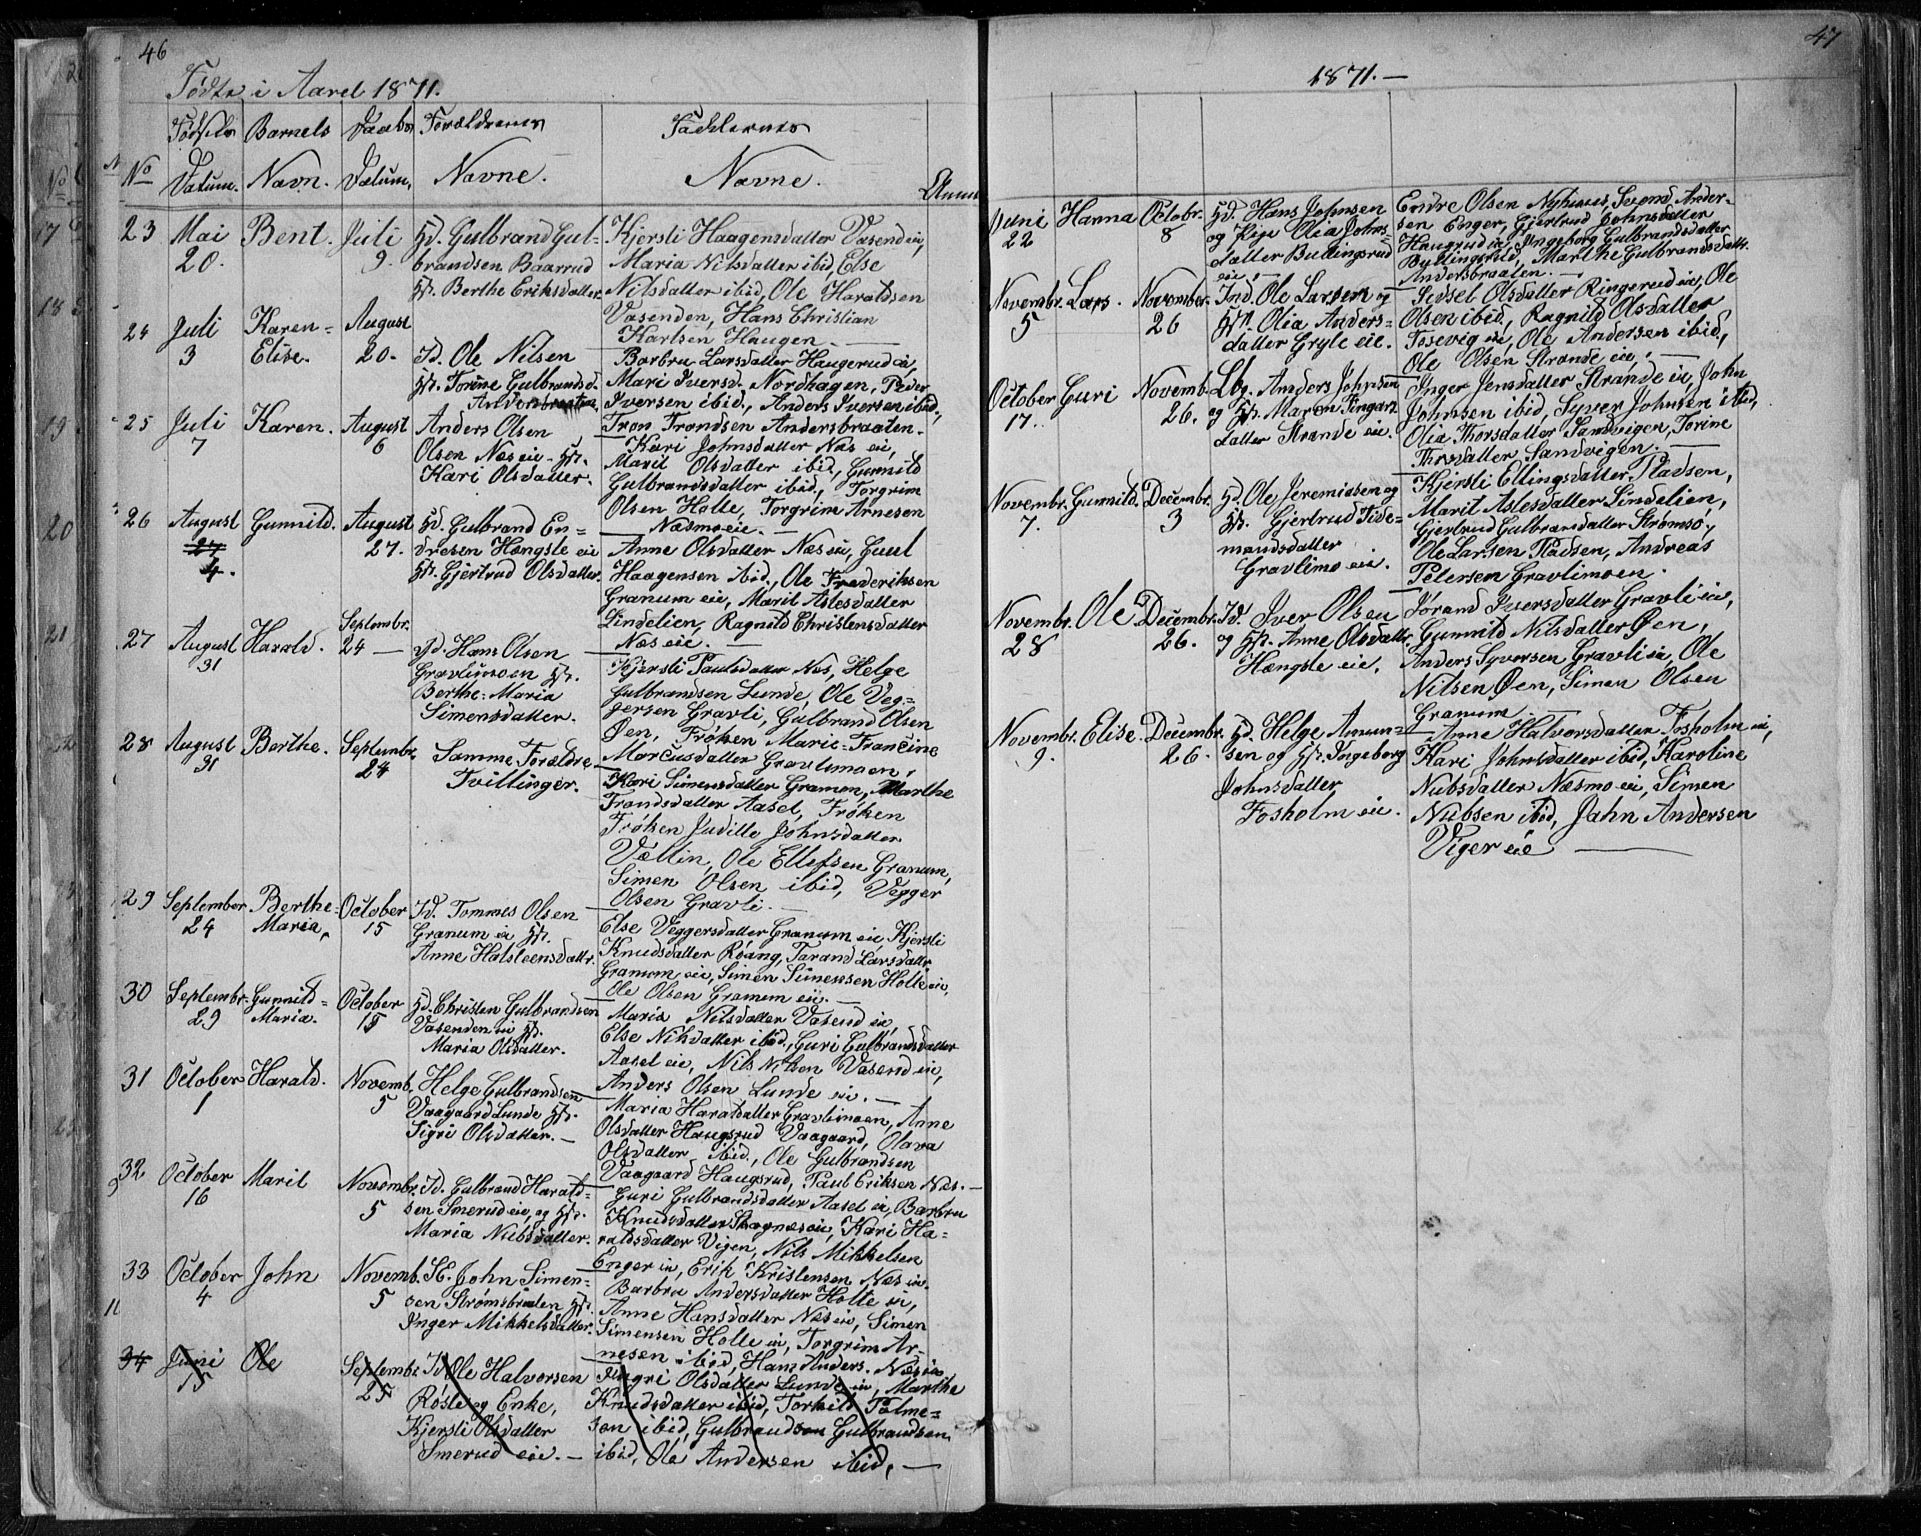 46
Fødte i Aaret 1871.
Fødsels Barnets Daabs Forældrenes Faddernes
No Datum. Navn. Datum. Navne. Navne.
23 Mai 20. Bent. Juli 9.
Gd. Gulbrand Gul-
brandsen Baarrud
Hst. Berthe Eriksdatter
Kjersti Haagensdatter Vasend eie,
Maria Nilsdatter ibid, Else
Nilsdatter ibid, Ole Haraldsen
Vasenden, Hans Christian
Karlsen Haugen. —
24 Juli 3 Karen-Elise. August 20.
Id. Ole Nilsen
Hst. Torine Gulbrandsd.
Andersbraaten.
Barbra Larsdatter Haugerud eie,
Mari Iversd. Nordhagen, Peder
Iversen ibid., Anders Iversen ibid.,
Tron Trondsen Andersbraaten.
25 Juli 7 Karen. August 6
Anders Olsen
Olsen Næs eie - Hst.
Kari Olsdatter.
Kari Johnsdatter Næs eie,
Marit Olsdatter ibid, Gunild
Gulbrandsdatter ibid, Torgrim
Olsen Holte, Torgrim Arnesen
Næsmo eie. —
26 August 27 4. Gunnild. August 27.
Gd. Gulbrand En-
dresen Hængsle eie
Hst. Gjertrud Olsdatter.
Anne Olsdatter Næs eie, Guul
Haagensen ibid., Ole Frederiksen
Granum eie, Marit Aslesdatter
Lindelien, Ragnild Christensdatter
Næs eie. —
27 August 31 Harald. Septembr. 24 —
Gd. Hans Olsen
Gravlimoen Hst.
Berthe-Maria
Simensdatter.
Kjersti Paulsdatter Næs, Helge
Gulbrandsen Lunde, Ole Veg-
gersen Gravli, Gulbrand Olsen
Øen, Frøken Marie-Francine
Marcusdatter Gravlimoen.
28 August 31 Berthe. Septembr. 24
Samme Forældre
Tvillinger.
Kari Simensdatter Granum, Marthe
Trondsdatter Aasel, Frøken
Frøken Judille Johnsdatter
Vættin, Ole Ellefsen Granum,
Simen Olsen ibid, Vegger
Olsen Gravli. —
29 September 24 Berthe-Maria, October 15
Id. Tommes Olsen
Granum eie Hst.
Anne Halsteensdattr.
Else Veggersdatter Granum eie, Kjersti
Knudsdatter Røang, Tarand Larsdattr
Granum eie, Simen Simensen Holte eie,
Ole Olsen Granum eie. —
30 Septembr. 29 Gunnild-Maria. October 15
Gd. Christen Gulbrandsen
Vasenden eie Hst.
Maria Olsdatter.
Maria Nilsdatter Vasend eie,
Else Nilsdatter ibid., Guri Gulbrandsdatter
Aasel eie, Nils Nilsen Vasend eie,
Anders Olsen Lunde eie. —
31 October 1 Harald. Novemb. 5
Helge Gulbrandsen
Vaagaard Lunde Hst.
Sigri Olsdatter. —
Maria Haraldsdatter Gravlimoen, Anne
Olsdatter Haugsrud Vaagaard, Olava
Olsdatter ibid., Ole Gulbrandsen
Vaagaard Haugsrud, Paul Eriksen Næs. —
32 October 16 Marit Novembr. 5
Id. Gulbrand Harald-
sen Smerud eie, og Hst.
Maria Nubsdatter.
Guri Gulbrandsdatter Aasel eie, Barbru
Knudsdatter Skagnæs eie, Kari Ha-
raldsdatter Vigen, Nils Mikkelsen
Enger eie, Erik Kristensen Næs eie.
33 October 4 John Novemb. 5
SE. John Simen-
sen Strømsbraten Hst.
Inger Mikkelsdatter.
Barbra Andersdatter Holte eie,
Anne Hansdatter Næs eie, Simen
Simensen Holte eie, Torgrim Ar-
nesen ibid, Hans Anders. Næs eie
34 Juni 15 Ole Septembr. 25
Id. Ole Halvorsen
Røsle og Enke,
Kjersti Olsdatter
Smerud eie. —
Ingri Olsdatter Lunde eie, Marthe
Knudsdatter ibid, Torkild Palme-
sen ibid, Gulbrandsen Gulbrandsen
ibid, Ole Andersen ibid, —
47
1871. —
Juni 22 Hanna Octobr. 8
Gd. Hans Johnsen
og Pige Olia Johns-
datter Buttingsrud
eie. —
Endre Olsen Nyhuus, Svend Ander-
sen Enger, Gjertrud Johnsdatter
Haugrud eie, Ingeborg Gulbrandsdatter
Byttingsrud, Marthe Gulbrandsdattr.
Andersbraaten. —
Novembr. 5 Lars. Novembr. 26
Ind. Ole Larsen og
Hst. Olia Anders-
datter Gryte eie.
Sidsel Olsdatter Ringerud eie, Ole
Olsen ibid, Ragnild Olsdatter
Fosevig eie, Ole Andersen ibid,
Ole Olsen Strande eie. —
October 17. Guri Novemb. 26.
Lbg. Anders Johnsen
og Hst. Maren Fingars
datter Strande eie.
Inger Jensdatter Strande eie, John
Johnsen ibid, Syver Johnsen ibid,
Olia Thorsdatter Sandvigen, Torine
Thorsdatter Sandvigen. —
Novembr. 7. Gunnild. Decembr. 3
Gd. Ole Jeremiassen og
Hst. Gjertrud Tide-
mandsdatter
Gravlimo eie.
Kjersti Ellingsdatter Pladsen,
Marit Aslesdatter Lindelien,
Gjertrud Gulbransdatter Strømsø,
Ole Larsen Pladsen, Andreas
Petersen Gravlimoen.
Novembr. 28 Ole Decembr. 26.
Id. Iver Olsen
og Hst. Anne Olsdattr
Hængsle eie.
Jørand Iversdatter Gravli eie,
Gunnild Nilsdatter Øen,
Anders Syversen Gravli eie, Ole
Nilsen Øen, Simen Olsen
Granum. —
Novembr. 9. Elise. Decembr. 26.
Gd. Helge Amun-
sen og Hst. Ingeborg
Johnsdatter
Fosholm eie.
Anne Halvorsdatter Fosholm eie,
Kari Johnsdatter ibid, Karoline
Nubsdatter Næsmo eie, Simen
Nubsen ibid, Jahn Andersen
Viger eie —